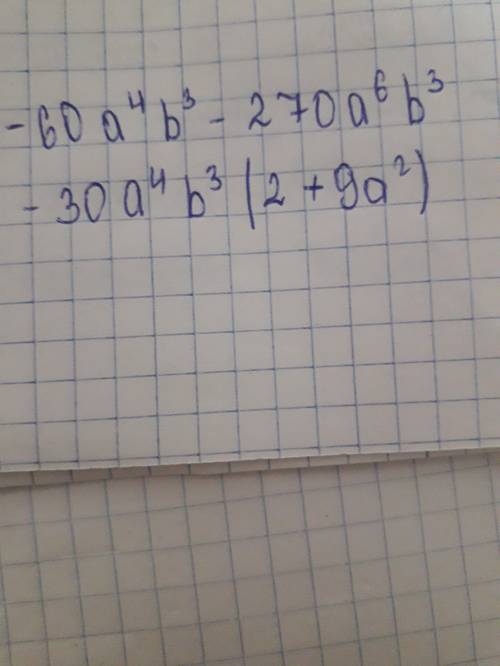 -60a⁴b³ - 270a⁶b³
-30a⁴b³(2+9a²)